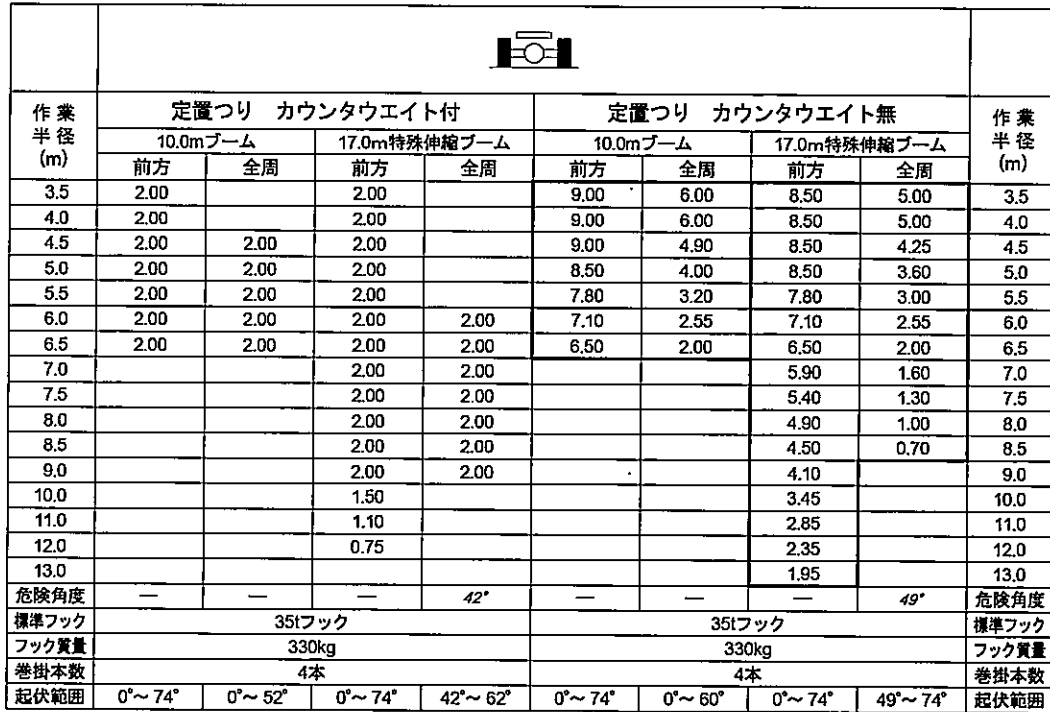 作業半径(m) 定置つり カウンタウエイト付 定置つり カウンタウエイト無 作業半径(m)
10.0mブーム 17.0m特殊伸縮ブーム 10.0mブーム 17.0m特殊伸縮ブーム
前方 全周 前方 全周 前方 全周 前方 全周
3.5 2.00 2.00 9.00 6.00 8.50 5.00 3.5
4.0 2.00 2.00 9.00 6.00 8.50 5.00 4.0
4.5 2.00 2.00 2.00 9.00 4.90 8.50 4.25 4.5
5.0 2.00 2.00 2.00 8.50 4.00 8.50 3.60 5.0
5.5 2.00 2.00 2.00 7.80 3.20 7.80 3.00 5.5
6.0 2.00 2.00 2.00 2.00 7.10 2.55 7.10 2.55 6.0
6.5 2.00 2.00 2.00 2.00 6.50 2.00 6.50 2.00 6.5
7.0 2.00 2.00 5.90 1.60 7.0
7.5 2.00 2.00 5.40 1.30 7.5
8.0 2.00 2.00 4.90 1.00 8.0
8.5 2.00 2.00 4.50 0.70 8.5
9.0 2.00 2.00 4.10 9.0
10.0 1.50 3.45 10.0
11.0 1.10 2.85 11.0
12.0 0.75 2.35 12.0
13.0 1.95 13.0
危険角度 — — — 42° — — — 49° 危険角度
標準フック 35tフック 35tフック 標準フック
フック質量 330kg 330kg フック質量
巻掛本数 4本 4本 巻掛本数
起伏範囲 0°~74° 0°~52° 0°~74° 42°~62° 0°~74° 0°~60° 0°~74° 49°~74° 起伏範囲